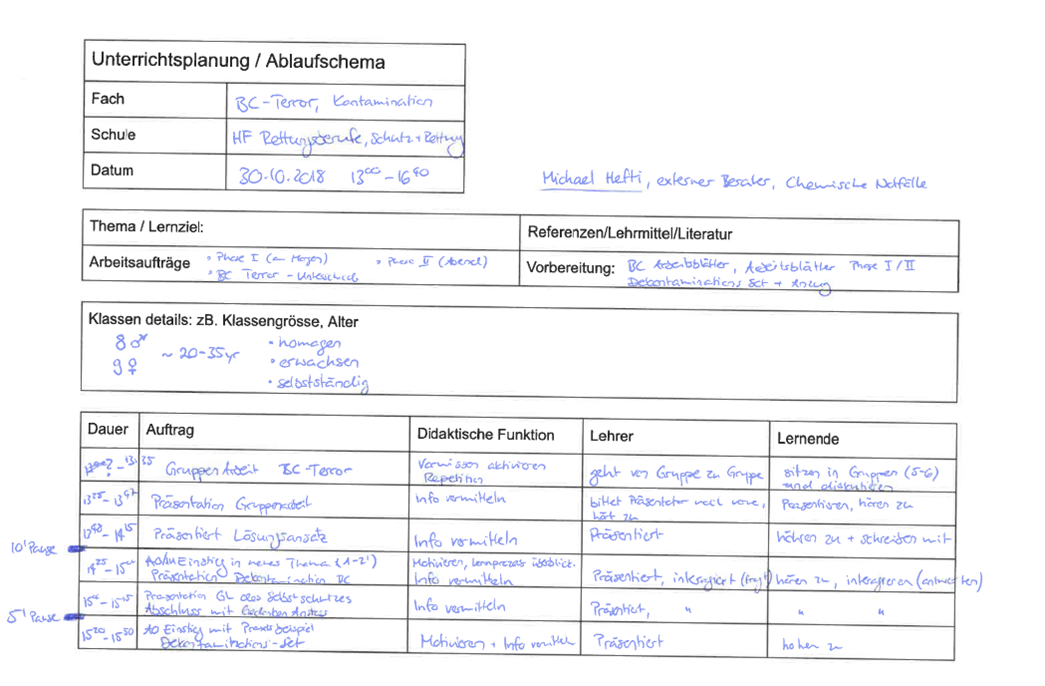 Unterrichtsplanung / Ablaufschema
Fach BC-Terror, Kontamination
Schule HF Rettungsberufe, Schutz + Rettung
Datum 30.10.2018 13⁰⁰ - 16⁴⁰
Michael Hefti, externer Berater, Chemische Notfälle
Thema / Lernziel: Referenzen/Lehrmittel/Literatur
Arbeitsaufträge • Phase I (am Morgen) • Phase II (Abend)
• BC Terror - Unterschied
Vorbereitung: BC Arbeitsblätter, Arbeitsblätter Phase I / II
Dekontaminations Set + Anzug
Klassen details: zB. Klassengrösse, Alter
8 ♂ • homogen
9 ♀ ~ 20-35yr • erwachsen
• selbstständig
Dauer Auftrag Didaktische Funktion Lehrer Lernende
13³⁵ Gruppen Arbeit BC-Terror Vorwissen aktivieren geht von Gruppe zu Gruppe sitzen in Gruppen (5-6)
Repetition und diskutieren
Präsentation Gruppenarbeit Info vermitteln bittet Präsentator nach vorne, Präsentieren, hören zu
hört zu
14¹⁵ Präsentiert Lösungsansatz Info vermitteln Präsentiert höhren zu + schreiben mit
10' Pause
14²⁵ - 15⁰⁰ Einstieg in neues Thema (1-2') Motivieren, lernprozess
Präsentation Dekontamination BC Info vermitteln Präsentiert, interagiert hören zu, interagieren (antworten)
Präsentation des Selbstschutzes
Abschluss mit Info vermitteln Präsentiert, " " "
5' Pause
15²⁰ - 15⁵⁰ Einstieg mit Praxisbeispiel
Dekontaminations-Set Motivieren + Info vermitteln Präsentiert hören zu